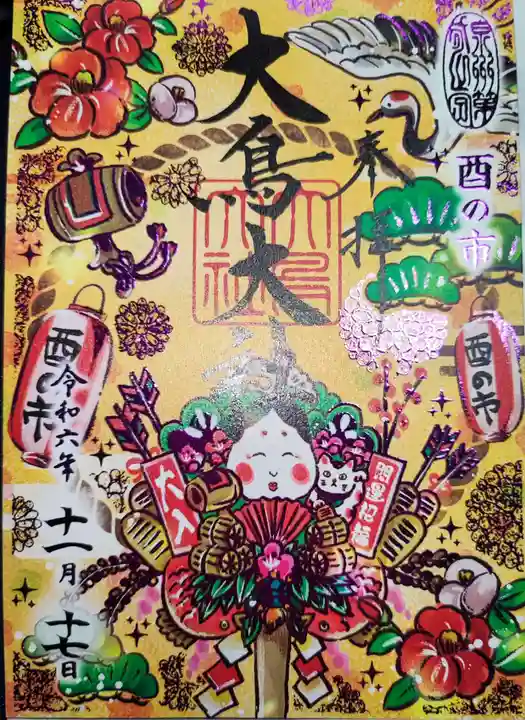 泉州第一之宮
酉の市
奉拝
大鳥大社
大鳥大社
酉の市
酉の市
令和六年
十一月十七日
大入
開運招福